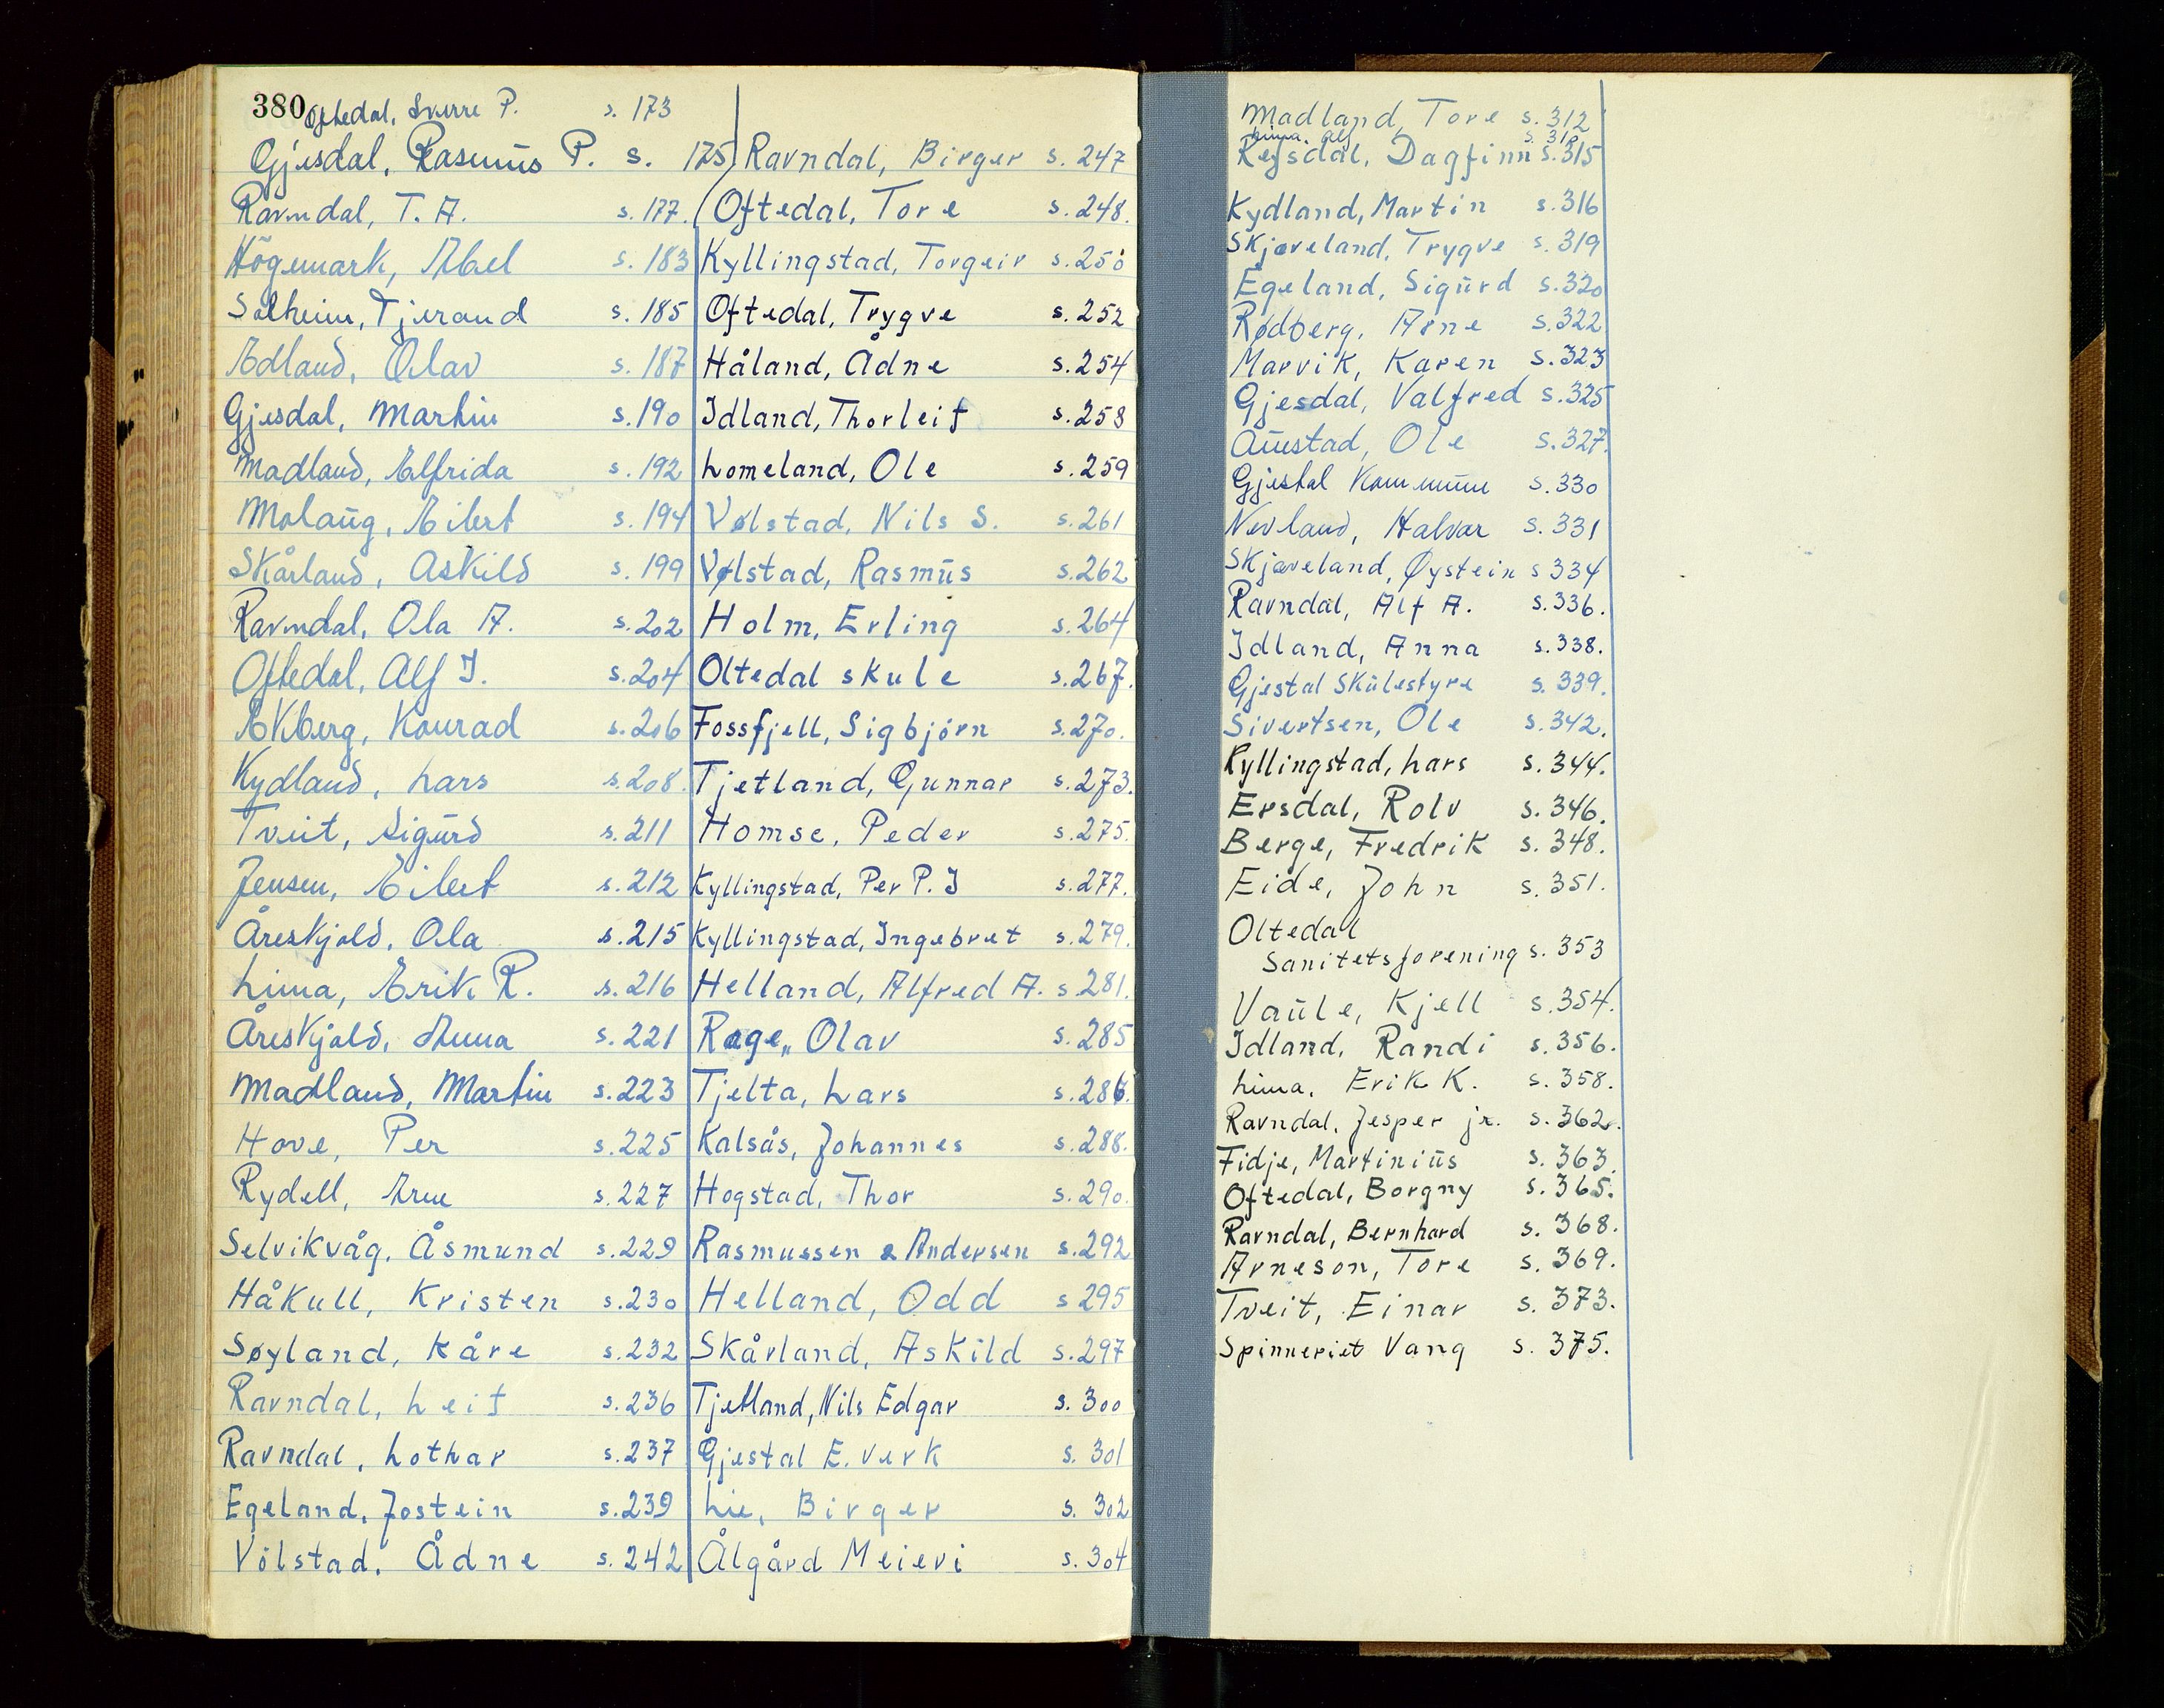 380 Oftedal, Sverre P. s. 173
Gjesdal, Rasmus P. s. 175
Ravndal, T. A. s. 177.
Högemark, Abel s. 183
Solheim, Tjerand s. 185
Edland, Olav s. 187
Gjesdal, Martin s. 190
Madland, Elfrida s. 192
Molaug, Eilert s. 194
Skårland, Askild s. 199
Ravndal, Ola A. s. 202
Oftedal, Alf I. s. 204
Ekberg, Konrad s. 206
Kydland, Lars s. 208.
Tveit, Sigurd s. 211
Jensen, Eilert s. 212
Åreskjold, Ola s. 215
Lima, Erik R. s. 216
Åreskjold, Anna s. 221
Madland, Martin s. 223
Hove, Per s. 225
Rydell, Arne s. 227
Selvikvåg, Åsmund s. 229
Håkull, Kristen s. 230
Søyland, Kåre s. 232
Ravndal, Leif s. 236
Ravndal, Lothar s. 237
Egeland, Jostein s. 239
Völstad, Ådne s. 242
Ravndal, Birger s. 247
Oftedal, Tore s. 248.
Kyllingstad, Torgeir s. 250
Oftedal, Trygve s. 252
Håland, Ådne s. 254
Idland, Thorleif s. 258
Lomeland, Ole s. 259
Vølstad, Nils S. s. 261
Vølstad, Rasmus s. 262
Holm, Erling s. 264
Oltedal skule s. 267.
Fossfjell, Sigbjörn s. 270.
Tjetland, Gunnar s. 273.
Homse, Peder s. 275.
Kyllingstad, Per P. I s. 277.
Kyllingstad, Ingebret s. 279.
Helland, Alfred A. s 281.
Rage, Olav s. 285
Tjelta, Lars s. 286.
Kalsås, Johannes s. 288.
Hogstad, Thor s. 290.
Rasmussen & Andersen s. 292
Helland, Odd s 295
Skårland, Askild s. 297
Tjetland, Nils Edgar s. 300
Gjestal E. verk s. 301
Lie, Birger s. 302
Ålgård Meieri s. 304
Madland, Tore s. 312
Lima. Alf s. 310
Refsdal, Dagfinn s. 315
Kydland, Martin s. 316
Skjæveland, Trygve s. 319
Egeland, Sigurd s. 320
Rødberg, Arne s. 322
Marvik, Karen s. 323
Gjesdal, Valfred s. 325
Austad, Ole s. 327.
Gjestal Kommune s. 330
Nevland, Halvar s. 331
Skjæveland, Øystein s 334
Ravndal, Alf A. s. 336.
Idland, Anna s. 338.
Gjestal Skulestyre s. 339.
Sivertsen, Ole s. 342.
Kyllingstad, Lars s. 344.
Ersdal, Rolv s. 346.
Berge, Fredrik s. 348.
Eide, John s. 351.
Oltedal
Sanitetsforening s. 353
Vaule, Kjell s. 354.
Idland, Randi s. 356.
Lima, Erik K. s. 358.
Ravndal, Jesper jr. s. 362.
Fidje, Martinius s. 363.
Oftedal, Borgny s. 365.
Ravndal, Bernhard s. 368.
Arneson, Tore s. 369.
Tveit, Einar s. 373.
Spinneriet Vang s. 375.